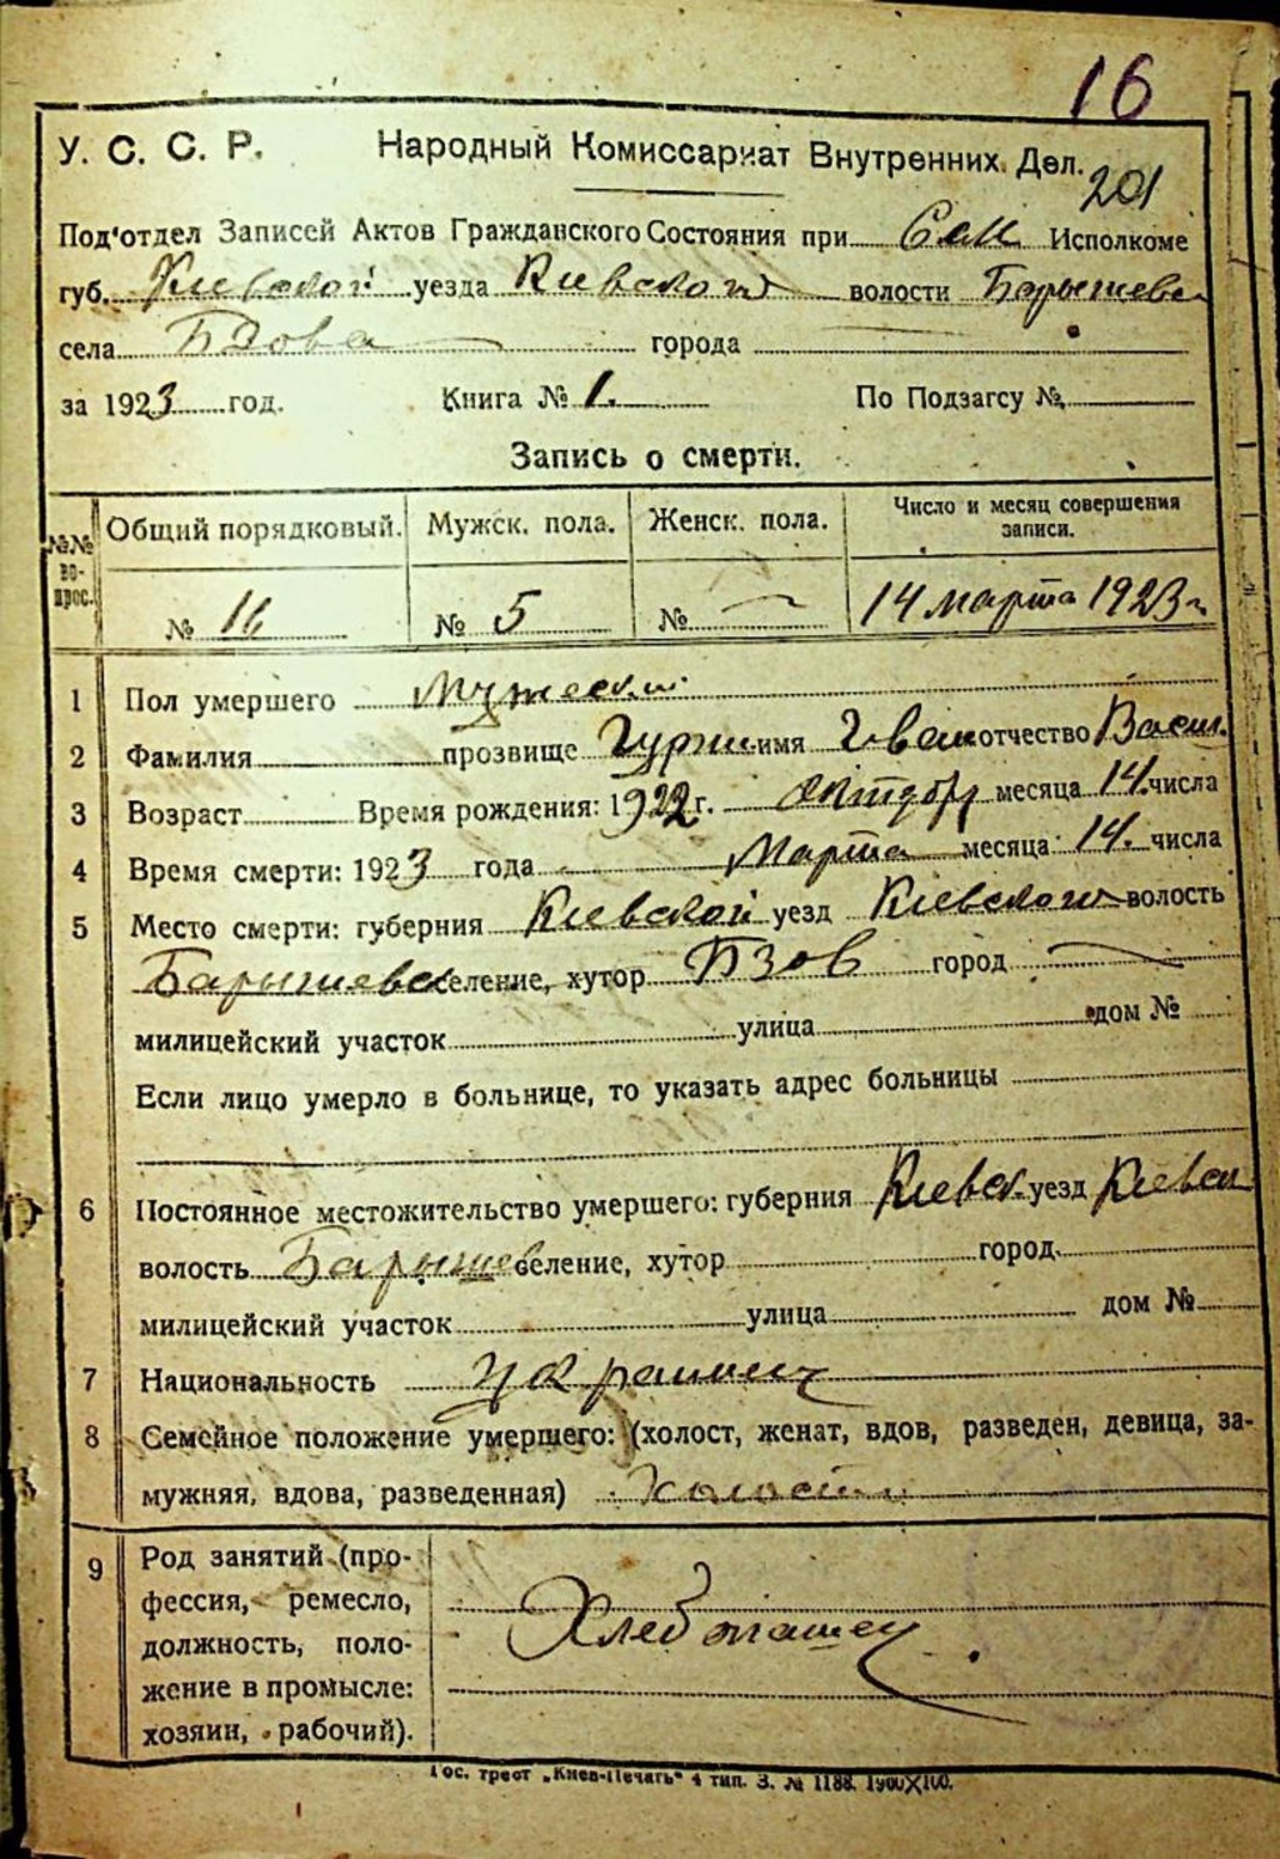 16
У. С. С. Р. Народный Комиссариат Внутренних Дел.
201
Под'отдел Записей Актов Гражданского Состояния при Исполкоме
губ. Киевской уезда Киевского волости Барышевск
села Бзова города
за 1923 год. Книга № 1. По Подзагсу №
Запись о смерти.
№№ вопрос. Общий порядковый. Мужск. пола. Женск. пола. Число и месяц совершения записи.
№ 16 № 5 № 14 марта 1923 г
1 Пол умершего Мужеский
2 Фамилия прозвище имя Иван отчество Васил.
3 Возраст Время рождения: 1922 г. месяца 14 числа
4 Время смерти: 1923 года Марта месяца 14. числа
5 Место смерти: губерния Киевской уезд Киевского волость
Барышевск селение, хутор Бзов город
милицейский участок улица дом №
Если лицо умерло в больнице, то указать адрес больницы
6 Постоянное местожительство умершего: губерния Киевск. уезд Киевск
волость Барышев селение, хутор город
милицейский участок улица дом №
7 Национальность
8 Семейное положение умершего: (холост, женат, вдов, разведен, девица, за-
мужняя, вдова, разведенная) холост
9 Род занятий (про-
фессия, ремесло,
должность, поло-
жение в промысле:
хозяин, рабочий).
Хлебопашец
Гос. трест „Киев-Печать" 4 тип. З. № 1188. 1900X100.